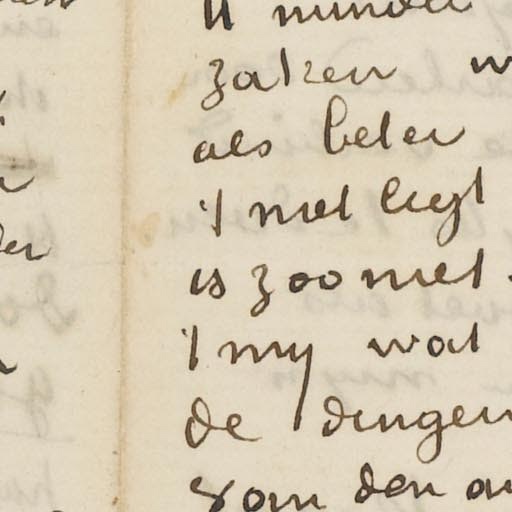 zaken
als beter
't niet ligt
is zoo niet
't my wat
de dingen
van den